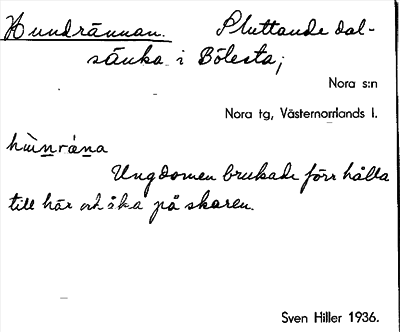 Hundrännan. Sluttande dal-
sänka i Bölesta;
Nora s:n
Nora tg, Västernorrlands l.
hùnrána
Ungdomen brukade förr hålla
till här och åka på skaren.
Sven Hiller 1936.